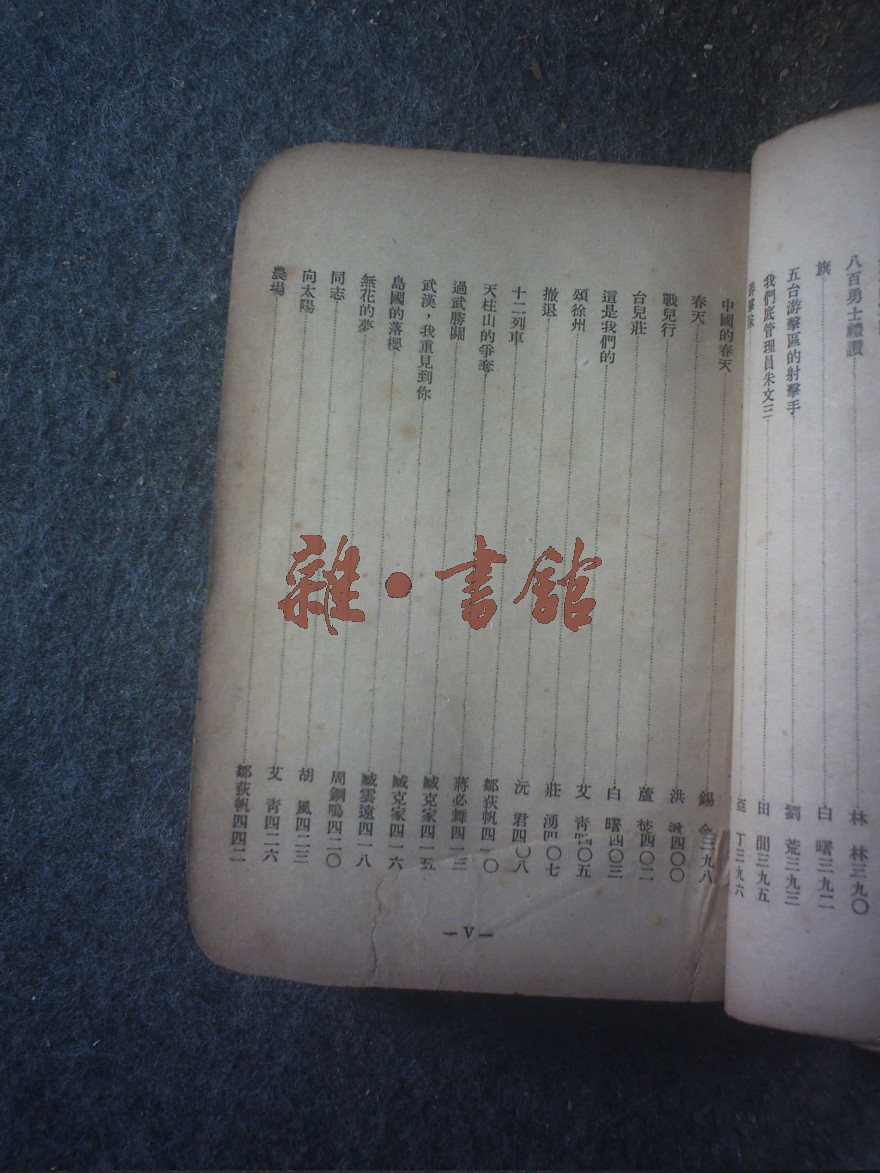 八百勇士禮讚 林林三九〇
旗 白曙三九二
五台游擊區的射擊手 劉荒三九三
我們底管理員朱文三 田間三九五
亞丁三九六
中國的春天 錫金三九八
春天 洪四〇〇
戰兒行 蘆焚四〇二
台兒莊 白曙四〇三
這是我們的 艾青四〇五
頌徐州 莊湧四〇七
撤退 沅君四〇八
十二列車 鄒荻帆四一〇
天柱山的爭奪 蔣必舞四一三
過武勝關 臧克家四一五
武漢，我重見到你 臧克家四一六
島國的落櫻 臧雲遠四一八
無花的夢 周鋼鳴四二〇
同志 胡風四二三
向太陽 艾青四二六
農場 鄒荻帆四四二
—V—
雜·書館